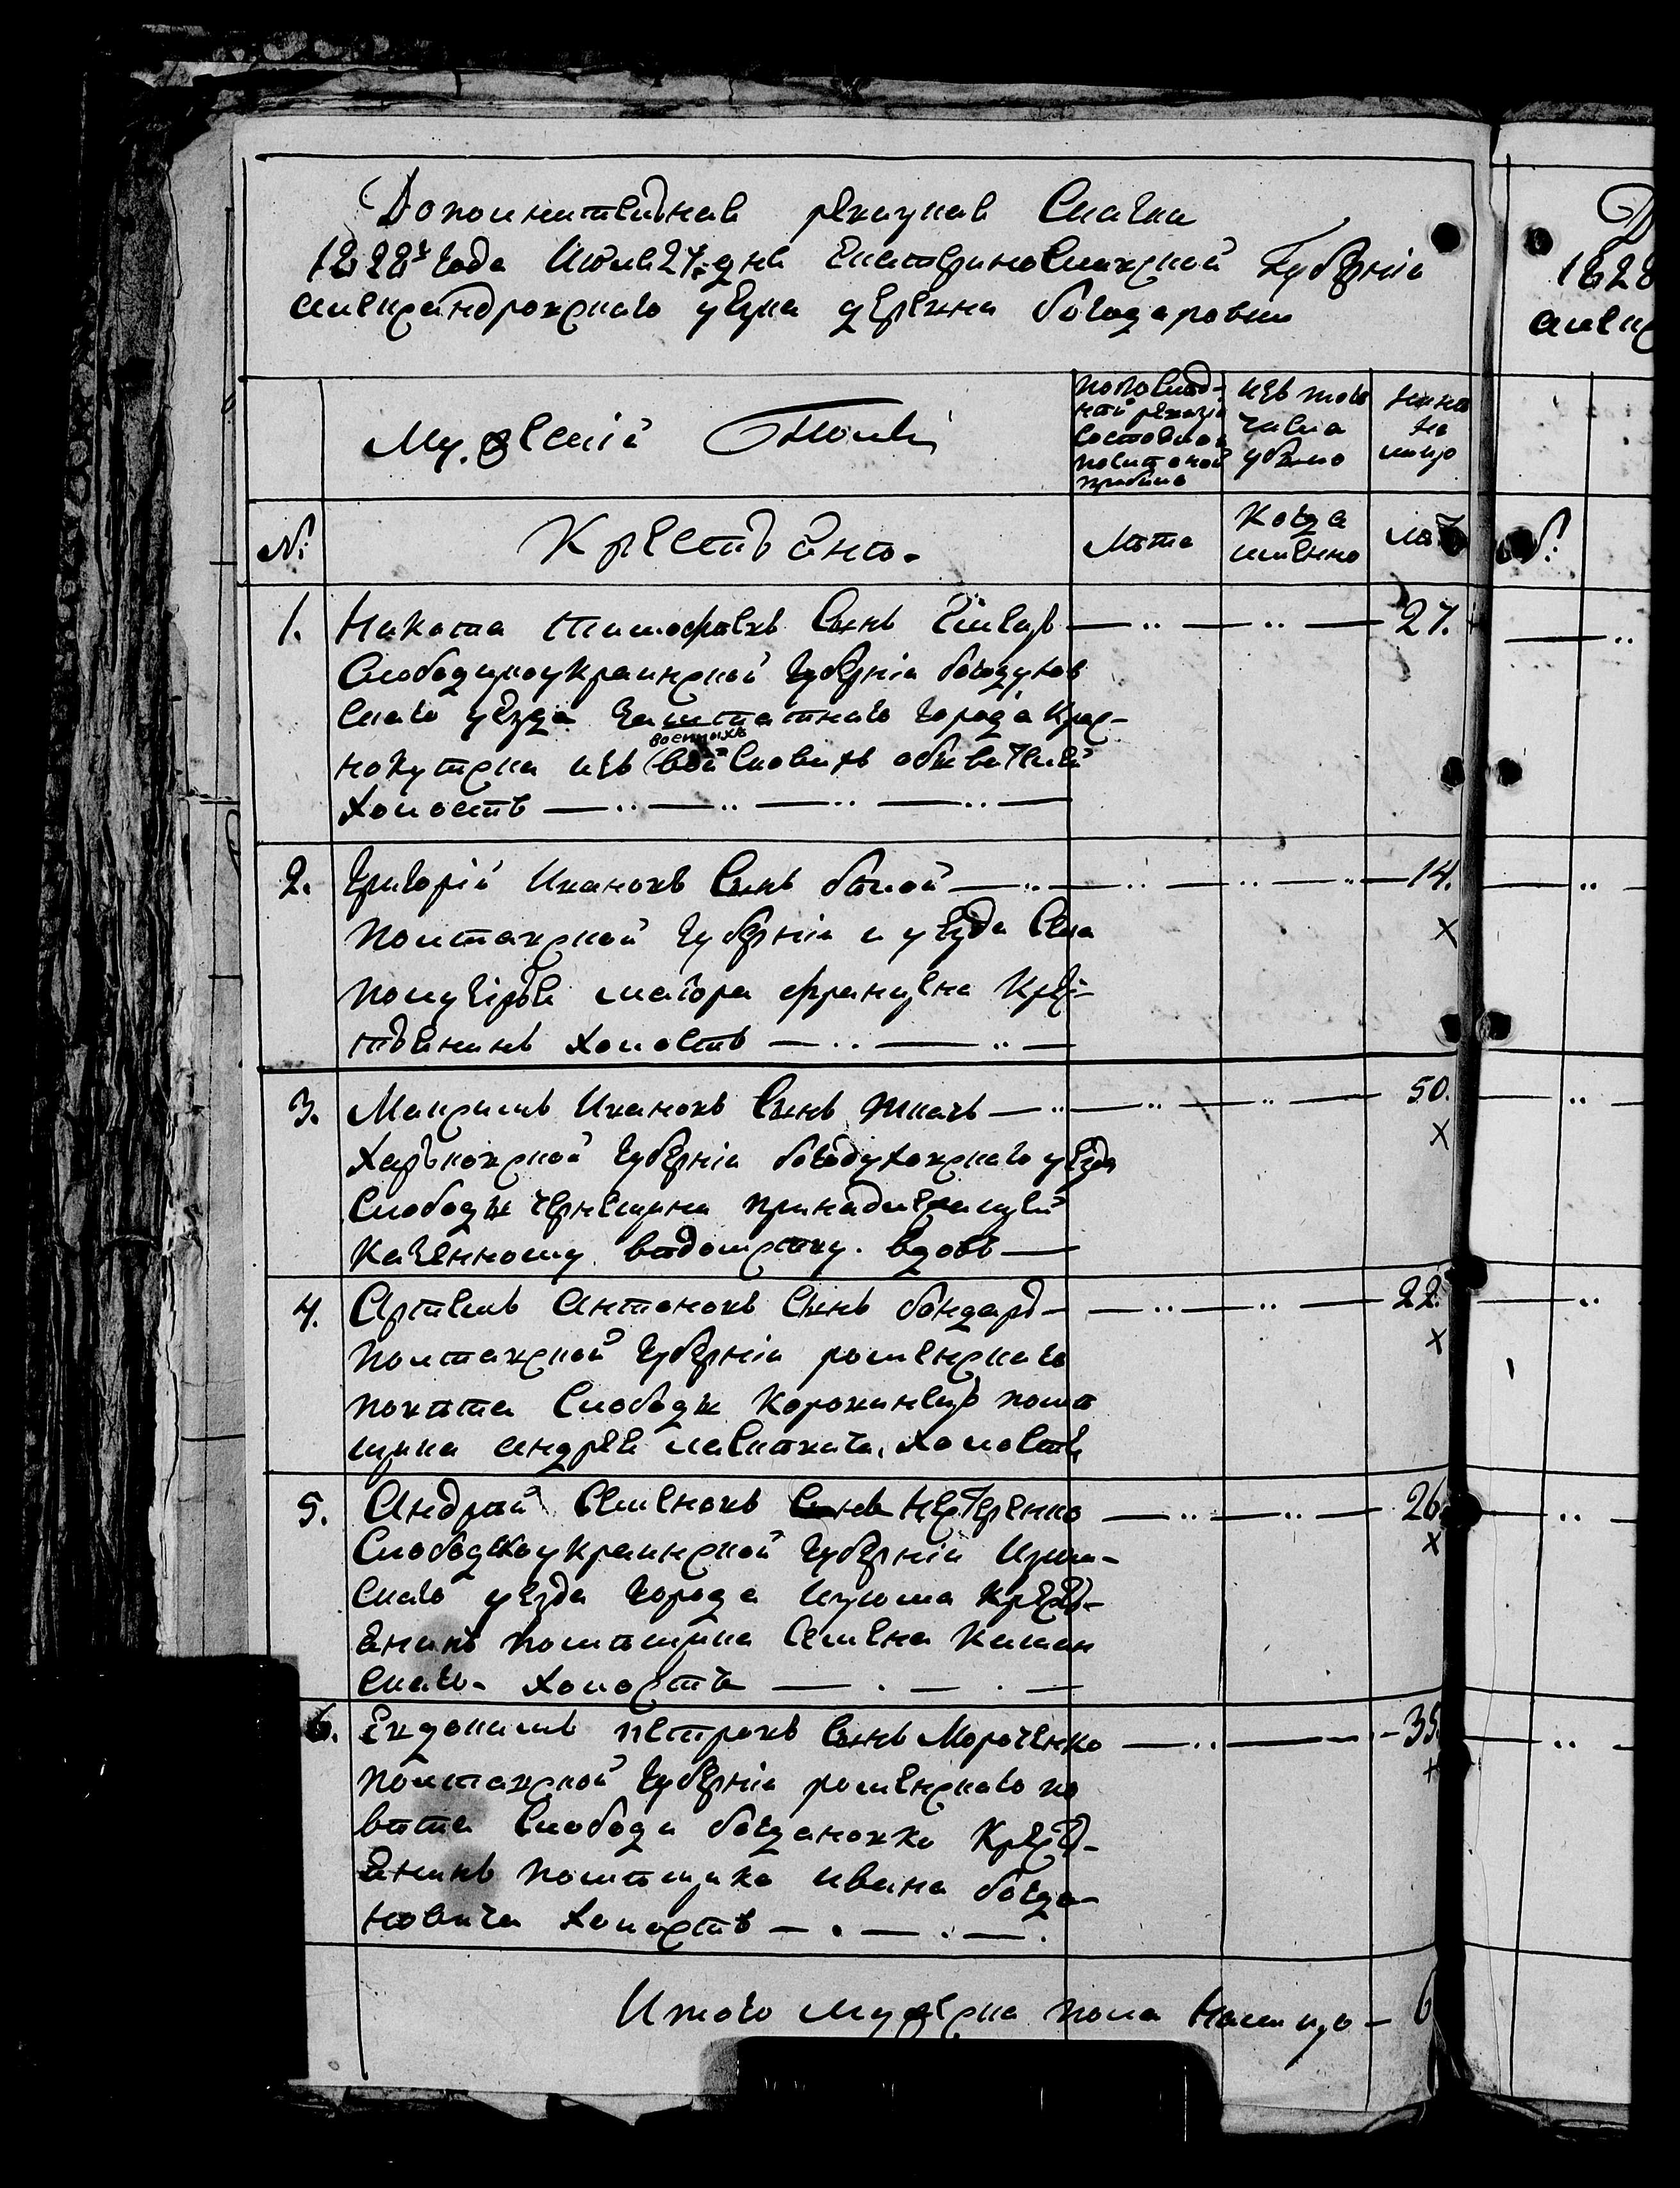 Дополнительная ревизкая Сказка
1828г года Июля 27. дня Екатеринославской Губерніи
александровскаго уезда деревни богодаровки
Мужескій Полъ
по послед-
ней ревизіи
состояло и
после оной
прибыло
изъ того
числа
убыло
ныне
на
лицо
№:
Крестьяне.
Лета
Когда
именно
лета
1. Никита Тимофеевъ Сынъ —..—..—27.
Слободскоукраинской губерніи богодухов
скаго уезда заштатнаго города Крас-
нокутска изъ войсковыхъ обывателей
военныхъ
холостъ —..—..—..—..—
2. Григорій Ивановъ Сынъ белой —..—..—..—..—14.
Полтавской губерніи и уезда Села
х
маіора Кресь-
тьянинъ холостъ —..—..—
3. Максимъ Ивановъ Сынъ ткачъ —..—..—..— 50.
х
Харьковской губерніи богодуховскаго уезда
Слободы принадлежащей
Казенному ведомству. вдовъ —
4. Артемъ Антоновъ Сынъ бондарь — —..—..— 22.
х
Полтавской губерніи роменскаго
повета Слободы Коровинецъ поме
щика андрея холостъ
5. Андрей Семеновъ Сынъ Нестеренко —..—..— 26.
х
Слободскоукраинской губерніи Изюм-
скаго уезда города Изюма Кресть-
янинъ помещика Семена
скаго. холостъ — . — . —
6. Евдокимъ петровъ Сынъ Мороченко —..— — - 35.
х
Полтавской губерніи роменскаго по
вета Слободы богдановки Кресть-
янинъ помещика ивана богда-
новича холостъ — . — . — .
Итого мужеска пола налицо — 6
№:
1828